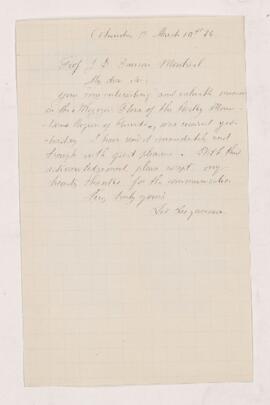 Columbus O. March 10th 86
Prof J. D. Dawson Montreal
My dear Sir,
Your very interesting and valuable memoir
on the Mesozoic Flora of the Rocky Moun-
tains Region of Canada, was received yes-
terday. I have read it immediately and
through with great pleasure. With this
acknowledgement please accept my
hearty thanks for the communication
Very truly yours
Leo Lesquereux